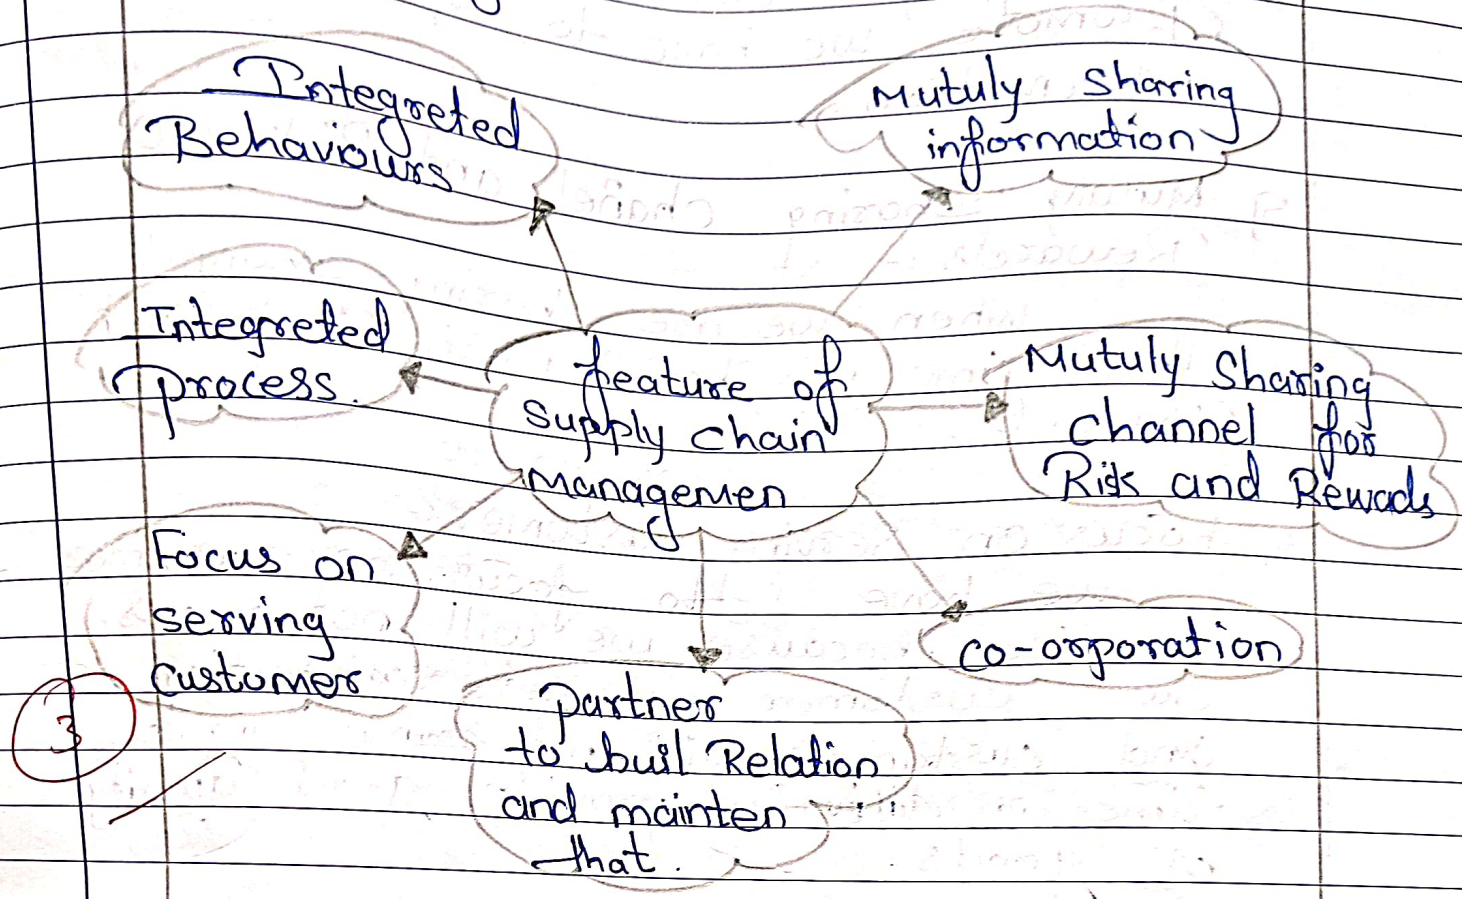 Integreted
Behaviours
Mutuly Sharing
information
Integreted
process.
feature of
supply chain
Managemen
Mutuly Sharing
channel for
Risk and Rewads
Focus on
serving
customer
co-orporation
partner
to buil Relation
and mainten
that.
3